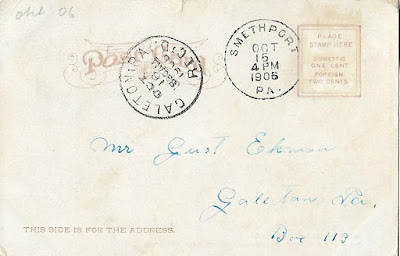 oht 06
Post Card
GALETON, PA.
REC'D.
SMETHPORT
OCT
15
4 PM
1906
PA.
PLACE
STAMP HERE
DOMESTIC
ONE CENT
FOREIGN
TWO CENTS
Mr Gust Ekman
Galeton, Pa.
Box 113
THIS SIDE IS FOR THE ADDRESS.